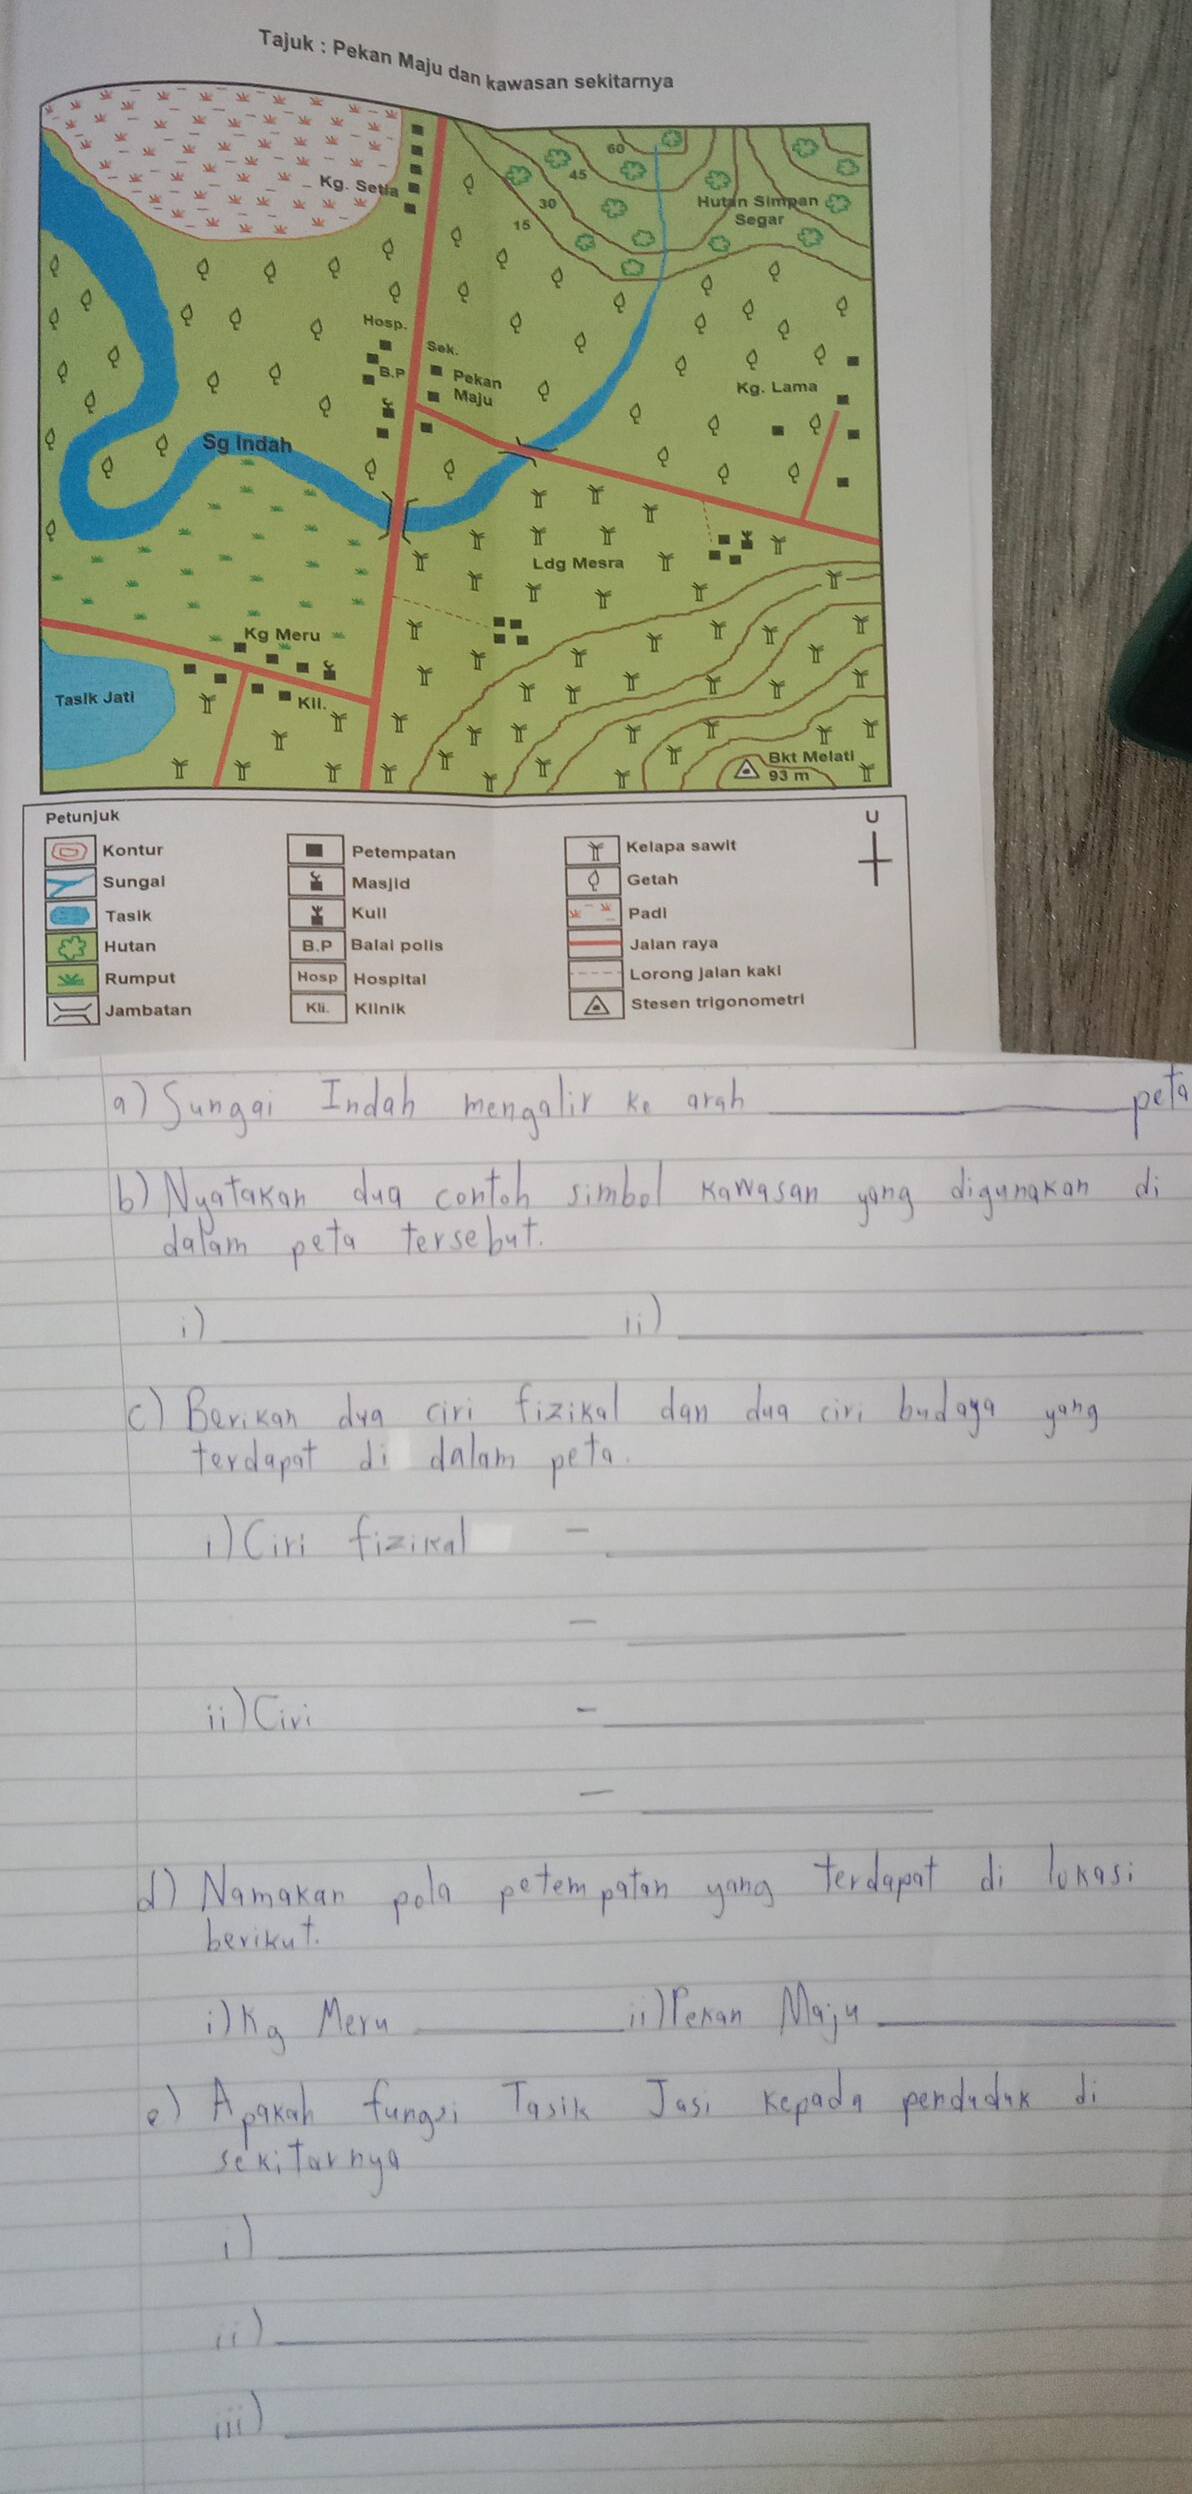 Tajuk : Pekan Maju dan kawasan sekitarnya
60
45
30
15
Kg. Setia
Hutan Simpan
Segar
Hosp.
Sek.
B.P
Pekan
Maju
Kg. Lama
Sg Indah
Ldg Mesra
Kg Meru
Tasik Jati
Kli.
Bkt Melati
93 m
Petunjuk
U
Kontur
Sungai
Tasik
Hutan
Rumput
Jambatan
Petempatan
Masjid
Kuil
B.P Balai polis
Hosp Hospital
Kli. Klinik
Kelapa sawit
Getah
Padi
Jalan raya
Lorong jalan kaki
Stesen trigonometri
a) Sungai Indah mengalir ke arah ____________ peta
b) Nyatakan dua contoh simbol kawasan yang digunakan di
dalam peta tersebut.
i) ____________ ii) ____________
c) Berikan dua ciri fizikal dan dua ciri budaya yang
terdapat di dalam peta.
i) Ciri fizikal - ____________
- ____________
ii) Ciri - ____________
- ____________
d) Namakan pola petempatan yang terdapat di lokasi
berikut.
i) Kg Meru ____________ ii) Pekan Maju ____________
e) Apakah fungsi Tasik Jasi kepada penduduk di
sekitarnya
i) ____________
ii) ____________
iii) ____________